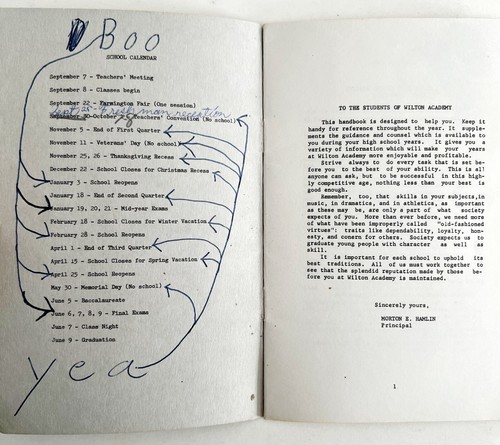 Boo
SCHOOL CALENDAR
September 7 - Teachers' Meeting
September 8 - Classes begin
September 22 - Farmington Fair (One session)
Sept 25-4 freshman reception
September 30-October Teachers' Convention (No school)
November 5 - End of First Quarter
November 11 - Veterans' Day (No school)
November 25, 26 - Thanksgiving Recess
December 22 - School Closes for Christmas Recess
January 3 - School Reopens
January 18 - End of Second Quarter
January 19, 20, 21 - Mid-year Exams
February 18 - School Closes for Winter Vacation
February 28 - School Reopens
April 1 - End of Third Quarter
April 15 - School Closes for Spring Vacation
April 25 - School Reopens
May 30 - Memorial Day (No school)
June 5 - Baccalaureate
June 6, 7, 8, 9 - Final Exams
June 7 - Class Night
June 9 - Graduation
yea
TO THE STUDENTS OF WILTON ACADEMY
This handbook is designed to help you. Keep it
handy for reference throughout the year. It supple-
ments the guidance and counsel which is available to
you during your high school years. It gives you a
variety of information which will make your years
at Wilton Academy more enjoyable and profitable.
Strive always to do every task that is set be-
fore you to the best of your ability. This is all
anyone can ask, but to be successful in this high-
ly competitive age, nothing less than your best is
good enough.
Remember, too, that skills in your subjects, in
music, in dramatics, and in athletics, as important
as these may be, are only a part of what society
expects of you. More than ever before, we need more
of what have been improperly called "old-fashioned
virtues": traits like dependability, loyalty, hon-
esty, and concern for others. Society expects us to
graduate young people with character as well as
skill.
It is important for each school to uphold its
best traditions. All of us must work together to
see that the splendid reputation made by those be-
fore you at Wilton Academy is maintained.
Sincerely yours,
MORTON E. HAMLIN
Principal
1